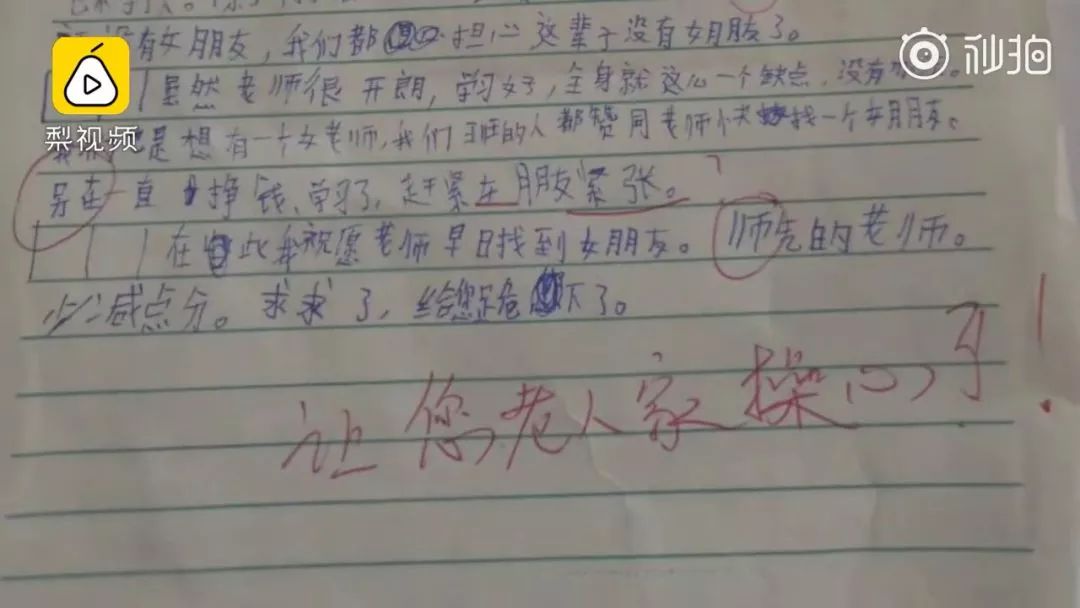 没有女朋友，我们都担心这辈子没有女朋友了。
秒拍
虽然老师很开朗，学习好，全身就这么一个缺点，没有
梨视频
是想有一个女老师，我们班的人都赞同老师快找一个女朋友。
另在一直挣钱、学习了，赶紧在朋友紧张。
在此我祝愿老师早日找到女朋友。师先的老师。
少减点分。求求了，给您跪下了。
让您老人家操心了！